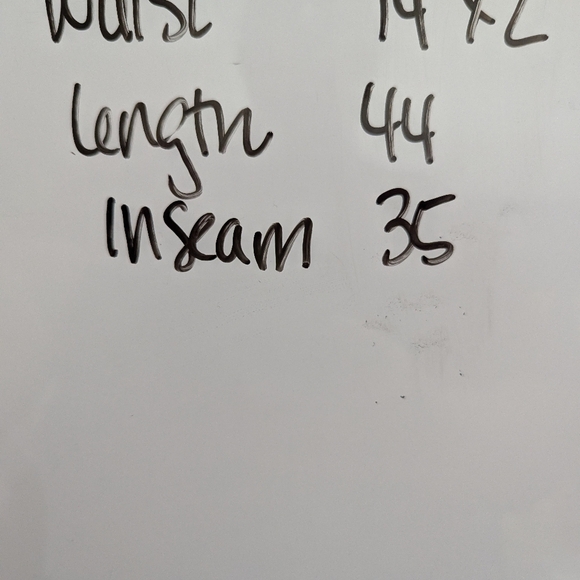 Waist 14 x 2
Length 44
Inseam 35